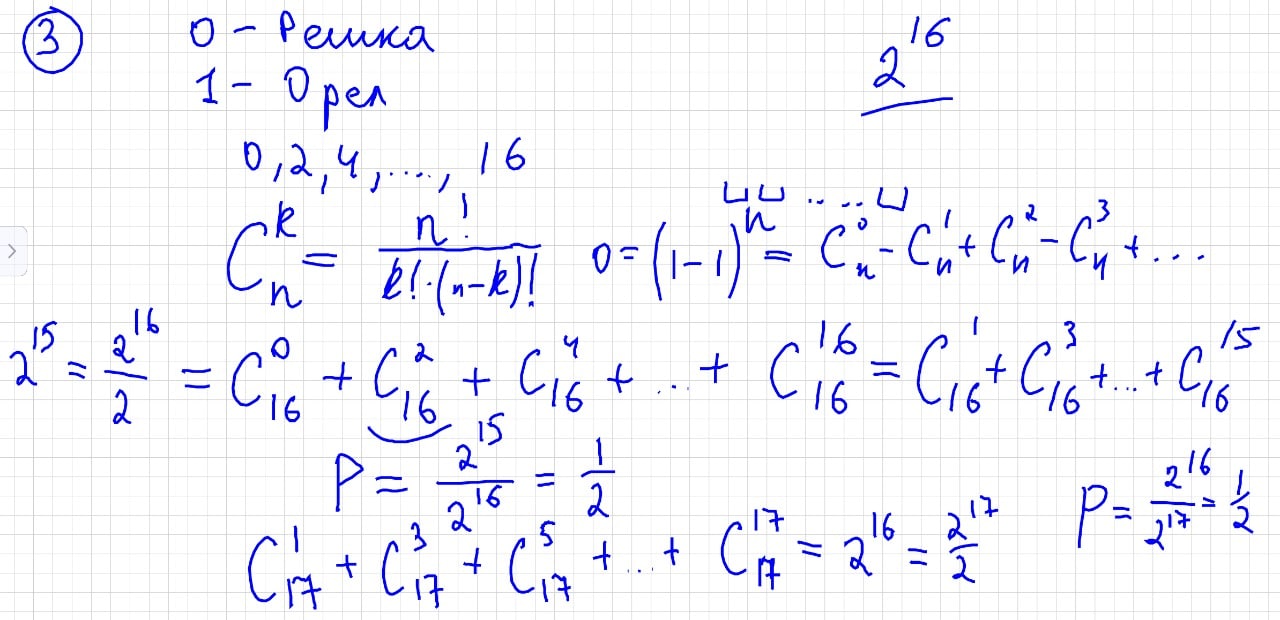 ③ 0 – Решка 2^{16}
1 – Орел
0, 2, 4, ..., 16
⊔⊔ ..... ⊔
C_n^k = \frac{n!}{k! \cdot (n-k)!} 0 = (1-1)^n = C_n^0 - C_n^1 + C_n^2 - C_n^3 + ...
2^{15} = \frac{2^{16}}{2} = C_{16}^0 + C_{16}^2 + C_{16}^4 + ... + C_{16}^{16} = C_{16}^1 + C_{16}^3 + ... + C_{16}^{15}
P = \frac{2^{15}}{2^{16}} = \frac{1}{2} P = \frac{2^{16}}{2^{17}} = \frac{1}{2}
C_{17}^1 + C_{17}^3 + C_{17}^5 + ... + C_{17}^{17} = 2^{16} = \frac{2^{17}}{2}